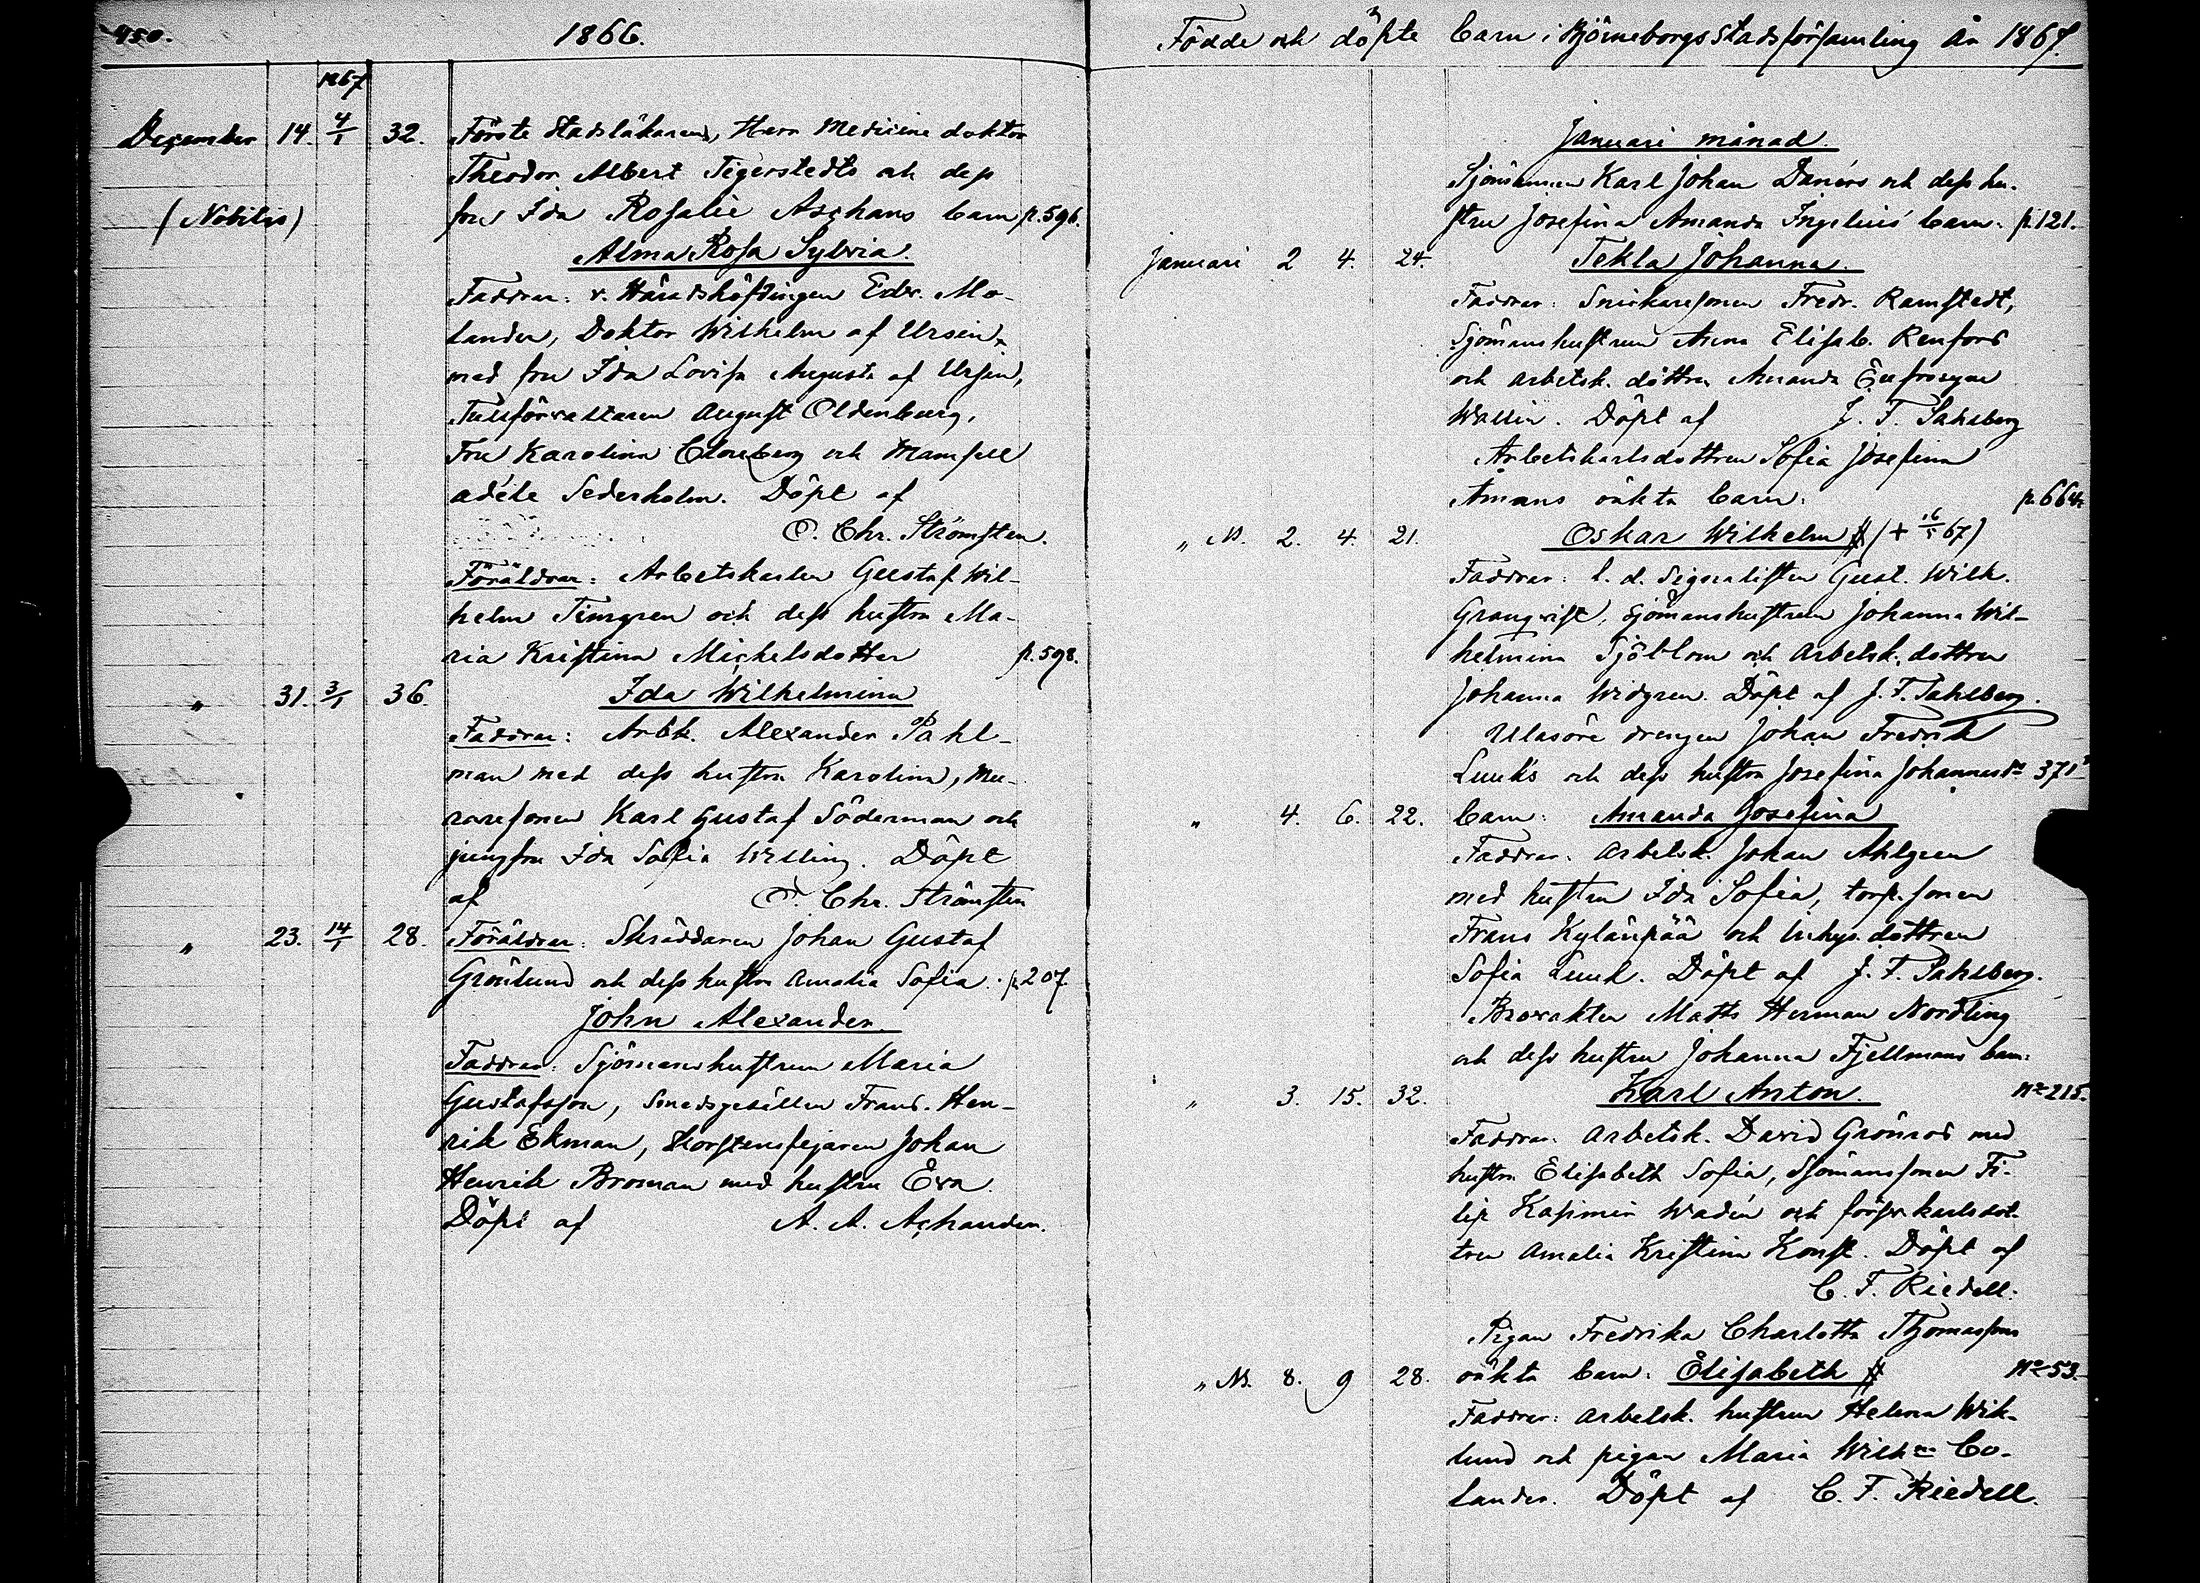 450. 1866.
1867
December 14. 4/1 32. Förste Stadsläkaren, Herr Medicine doktor
Theodor Albert Tigerstedts och dess
(Nobilis) fru Ida Rosalie Aschans barn p. 596.
Alma Rosa Sylvia.
Faddrar: v. Häradshöfdingen Edv. Mo-
lander, Doktor Wilhelm af Ursin
med fru Ida Lovisa Augusta af Ursin,
Tullförvaltaren August Oldenburg,
Fru Karolina Clouberg och Mamsell
Adéle Sederholm. Döpt af
O. Chr. Strömsten.
Föräldrar: Arbetskarlen Gustaf Wil-
helm Timgren och dess hustru Ma-
ria Kristina Michelsdotter p. 598.
" 31. 3/1 36. Ida Wilhelmina
Faddrar: Arbk. Alexander Påhl-
man med dess hustru Karolina, Mu-
raresonen Karl Gustaf Söderman och
jungfru Ida Sofia Welling. Döpt
af O. Chr. Strömsten
" 23. 14/1 28. Föräldrar: Skräddaren Johan Gustaf
Grönlund och dess hustru Amalia Sofia. p. 207.
John Alexander
Faddrar: Sjömanshustrun Maria
Gustafsson, Smedsgesällen Frans Hen-
rik Ekman, Skorstensfejaren Johan
Henrik Broman med hustru Eva.
Döpt af A. A. Achander.
Födde och döpte barn i Björneborgs Stadsförsamling år 1867.
Januari månad.
Sjömannen Karl Johan Daniéls och dess hu-
stru Josefina Amanda Ingelius barn: p. 121.
Januari 2 4. 24. Tekla Johanna.
Faddrar: Snickaresonen Fredr. Ramstedt,
Sjömanshustrun Anna Elisab. Renfors
och arbetsk. döttren Amanda Eufrosyne
Wallin. Döpt af J. F. Sahlberg
Arbetskarlsdottren Sofia Josefina
Amans oäkta barn: p. 664.
" N. 2. 4. 21. Oskar Wilhelm # (+ 16/5 67)
Faddrar: l. d. Signalisten Gust. Wilh.
Granqvist, Sjömanshustrun Johanna Wil-
helmina Sjöblom och Arbetsk. dottren
Johanna Widgren. Döpt af J. F. Sahlberg.
Ulasöre drengen Johan Fredrik
Luuks och dess hustru Josefina Johannesdr 371
" 4. 6. 22. barn: Amanda Josefina
Faddrar: Arbetsk. Johan Ahlgren
med hustru Ida Sofia, torp. sonen
Frans Kylänpää och Inhys. dottren
Sofia Luuk. Döpt af J. F. Sahlberg.
Brovakten Matts Herman Nordling
och dess hustru Johanna Fjellmans barn:
" 3. 15. 32. Karl Anton. No 215.
Faddrar: Arbetsk. David Grönros med
hustru Elisabeth Sofia, Sjömanssonen Fi-
lip Kasimir Wadén och försv. karlsdot-
tren Amalia Kristina Konst. Döpt af
C. F. Riedell.
Pigan Fredrika Charlotta Thomassons
" N. 8. 9 28. oäkta barn: Elisabeth # No 53.
Faddrar: Arbetsk. hustrun Helena Wik-
lund och pigan Maria Wilhna Co-
lander. Döpt af C. F. Riedell.